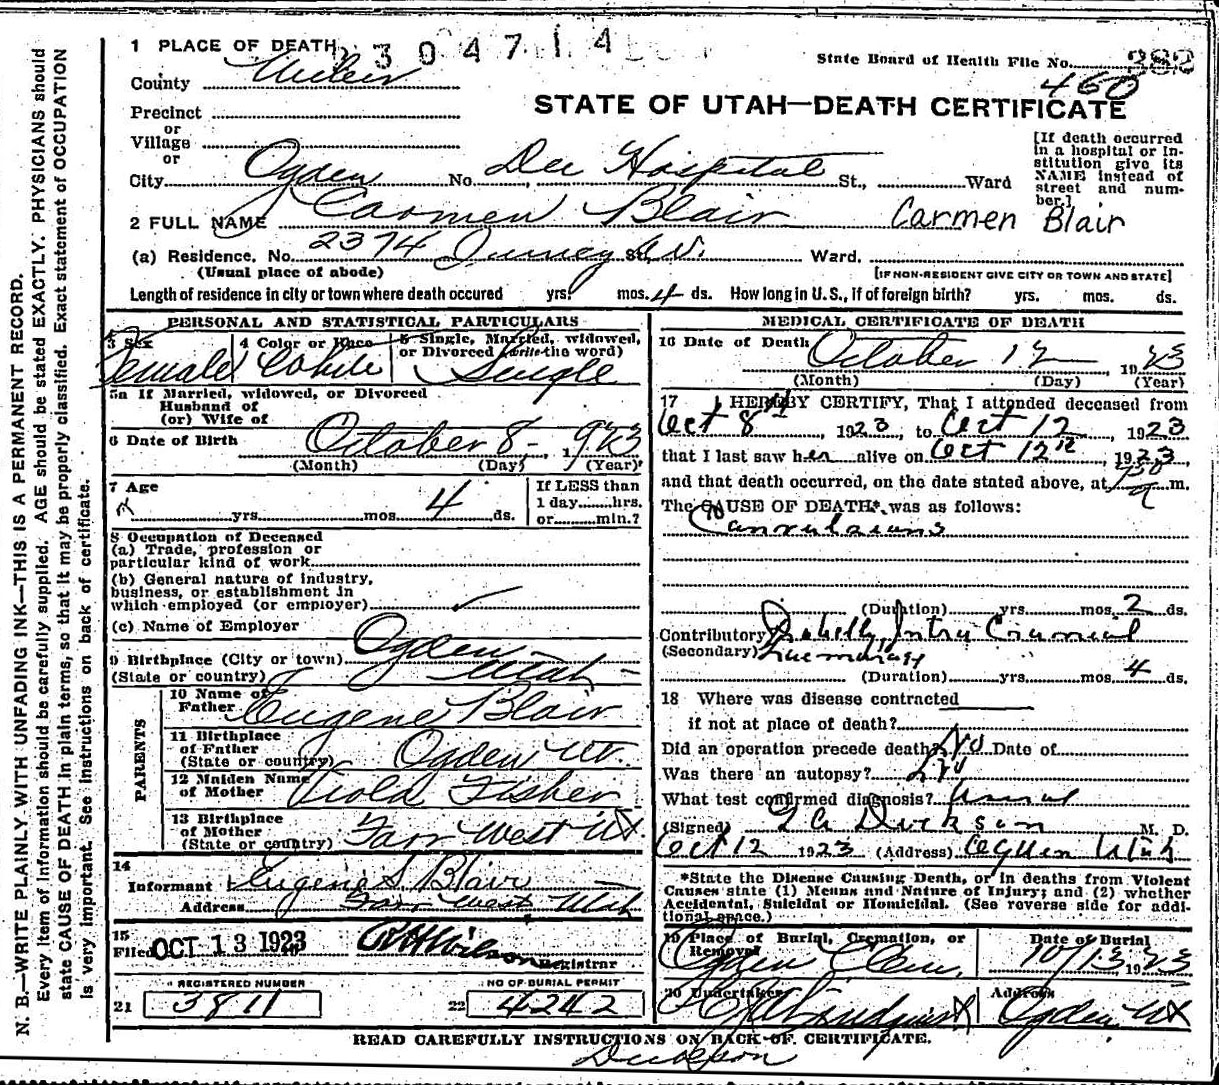 N. B.—WRITE PLAINLY WITH UNFADING INK—THIS IS A PERMANENT RECORD.
Every item of information should be carefully supplied. AGE should be stated EXACTLY. PHYSICIANS should
state CAUSE OF DEATH in plain terms, so that it may be properly classified. Exact statement of OCCUPATION
is very important. See instructions on back of certificate.
1 PLACE OF DEATH 304714
State Board of Health File No. 382
460
County Weber
STATE OF UTAH—DEATH CERTIFICATE
Precinct
or
Village
or
City Ogden No. Dee Hospital St., Ward
[If death occurred in a hospital or institution give its NAME instead of street and number.]
2 FULL NAME Carmen Blair Carmen Blair
(a) Residence, No. 2374 St. Av. Ward.
(Usual place of abode) [IF NON-RESIDENT GIVE CITY OR TOWN AND STATE]
Length of residence in city or town where death occured yrs. mos. 4 ds. How long in U. S., if of foreign birth? yrs. mos. ds.
PERSONAL AND STATISTICAL PARTICULARS
3 Sex Female
4 Color or Race White
5 Single, Married, widowed, or Divorced (write the word) Single
5a If Married, widowed, or Divorced
Husband of
(or) Wife of
6 Date of Birth October 8 - 1923
(Month) (Day) (Year)
7 Age yrs. mos. 4 ds.
If LESS than
1 day hrs.
or min.?
8 Occupation of Deceased
(a) Trade, profession or
particular kind of work
(b) General nature of industry,
business, or establishment in
which employed (or employer)
(c) Name of Employer
9 Birthplace (City or town) Ogden
(State or country) Utah
PARENTS
10 Name of Father Eugene Blair
11 Birthplace of Father (State or country) Ogden Ut.
12 Maiden Name of Mother Viola Fisher
13 Birthplace of Mother (State or country) Farr West Ut.
14
Informant Eugene S. Blair
Address Farr West, Utah
15
Filed OCT 13 1923 Wilson Registrar
REGISTERED NUMBER
21 3811
NO OF BURIAL PERMIT
22 4242
MEDICAL CERTIFICATE OF DEATH
16 Date of Death October 12 1923
(Month) (Day) (Year)
17 I HEREBY CERTIFY, That I attended deceased from
Oct 8th, 1923, to Oct 12, 1923
that I last saw her alive on Oct 12th, 1923
and that death occurred, on the date stated above, at m.
The CAUSE OF DEATH* was as follows:
Convulsions
(Duration) yrs. mos. 2 ds.
Contributory Probably Intra Cranial
(Secondary) haemorrhage
(Duration) yrs. mos. 4 ds.
18 Where was disease contracted
if not at place of death?
Did an operation precede death? No Date of
Was there an autopsy? No
What test confirmed diagnosis? Usual
(Signed) Dickson M. D.
Oct 12 1923 (Address) Ogden Utah
*State the Disease Causing Death, or in deaths from Violent
Causes state (1) Means and Nature of Injury; and (2) whether
Accidental, Suicidal or Homicidal. (See reverse side for additional space.)
19 Place of Burial, Cremation, or Removal Ogden Cem.
Date of Burial 10/13 1923
20 Undertaker Lindquist
Address Ogden Ut
READ CAREFULLY INSTRUCTIONS ON BACK OF CERTIFICATE.